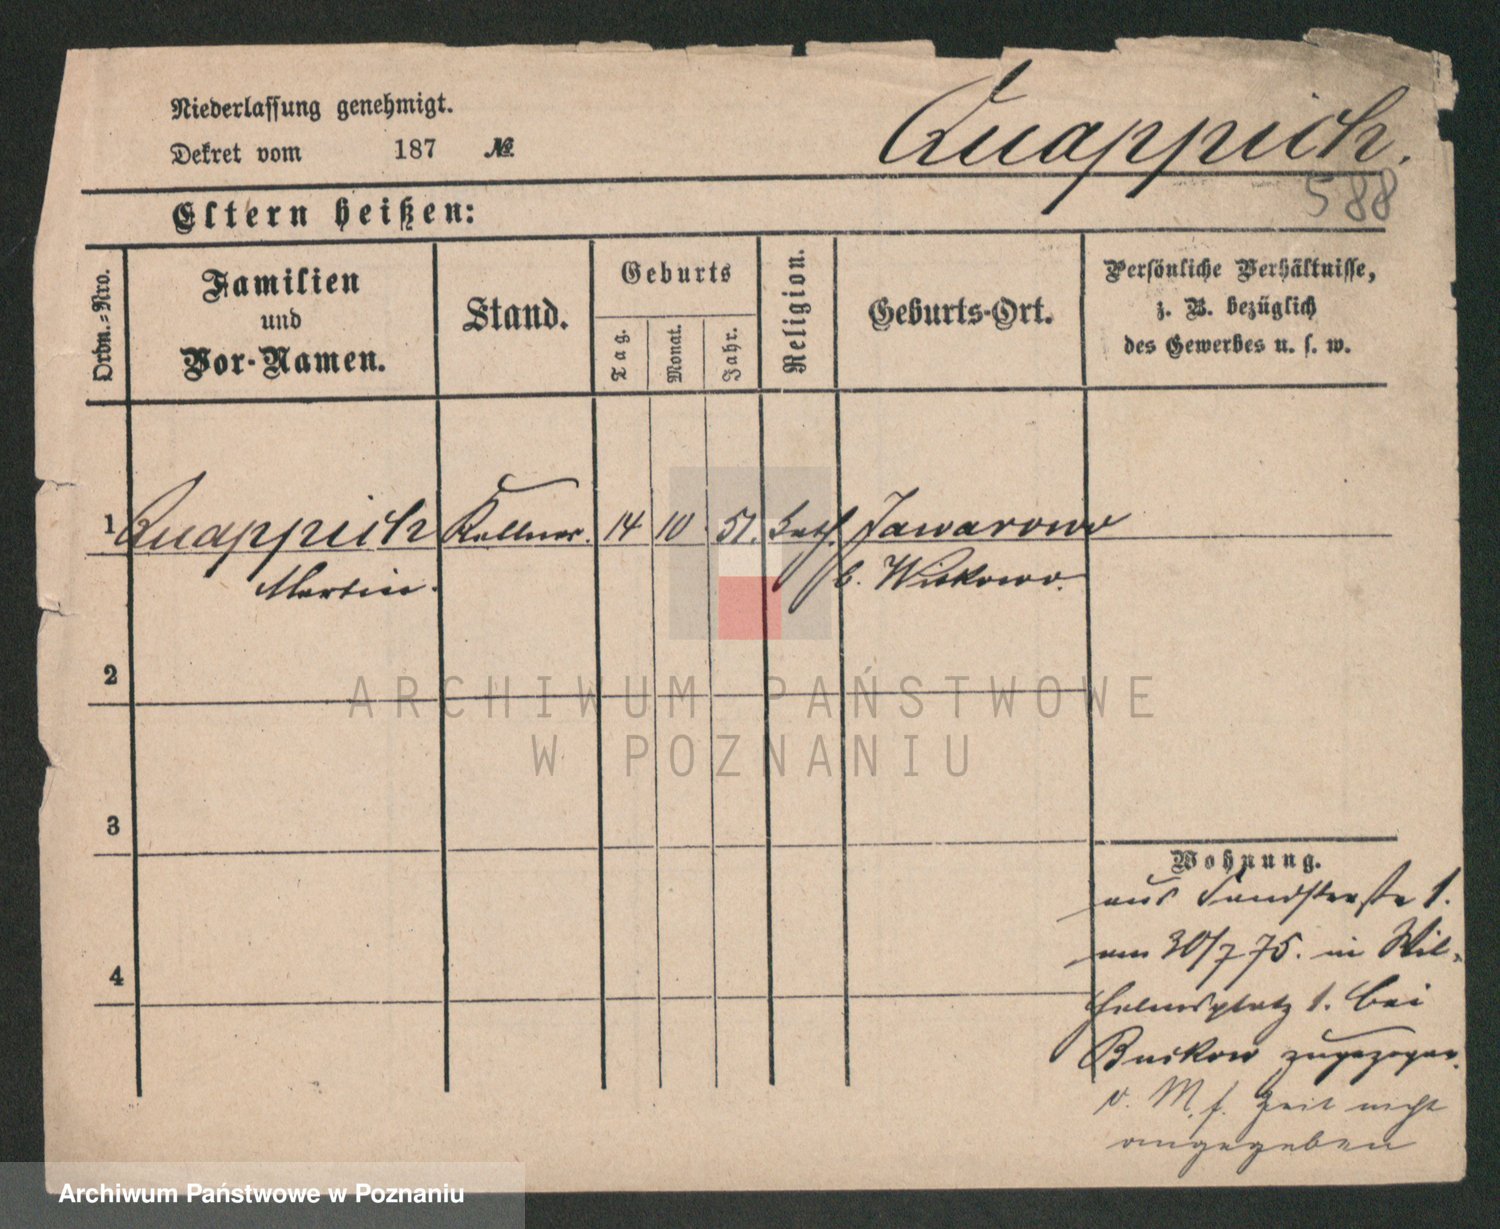 Niederlassung genehmigt.
Dekret vom 187 №
Quappich.
588
Eltern heißen:
Ordn.-Nro.
Familien
und
Vor-Namen.
Stand.
Geburts
Tag.
Monat.
Jahr.
Religion.
Geburts-Ort.
Persönliche Verhältnisse,
z. B. bezüglich
des Gewerbes u. s. w.
1 Quappich Kellner. 14 10 51. kath. Jawarowo
Martin. b. Witkowo.
2
3
4
Wohnung.
aus Sandstraße 1.
am 30/7 75. in Wil-
helmsplatz 1. bei
Buckow zugezogen.
v. M. f. Zeit nicht
angegeben
ARCHIWUM PAŃSTWOWE
W POZNANIU
Archiwum Państwowe w Poznaniu